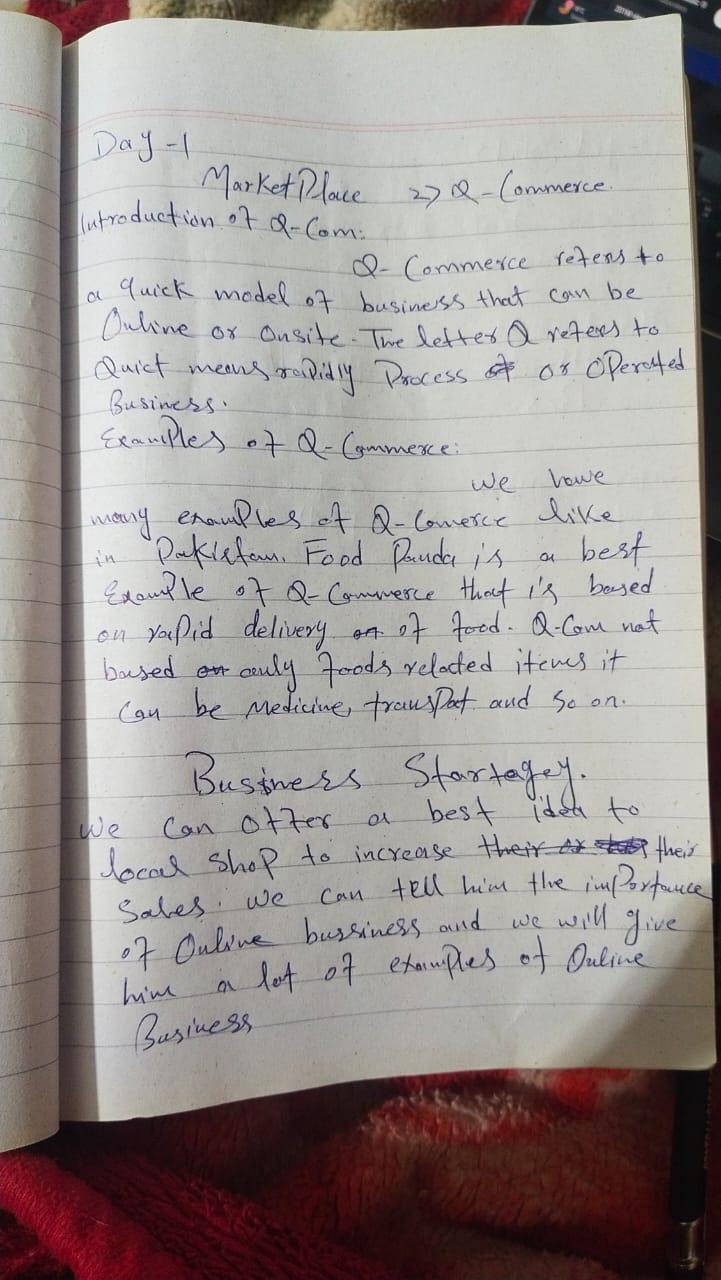 Day-1
MarketPlace => Q-Commerce.
Introduction of Q-Com:
Q-Commerce refers to
a quick model of business that can be
Online or Onsite. The letter Q refers to
Quict means rapidly Process or Operated
Business.
Examples of Q-Commerce:
We have
many examples of Q-Comerce like
in Pakistan. Food Panda is a best
Example of Q-Commerce that is based
on rapid delivery of food. Q-Com not
based only foods related items it
Can be Medicine, transpot and so on.
Business Startegey.
We Can offer a best idea to
local shop to increase their
Sales. We can tell him the importance
of Online bussiness and we will give
him a lot of examples of Online
Business